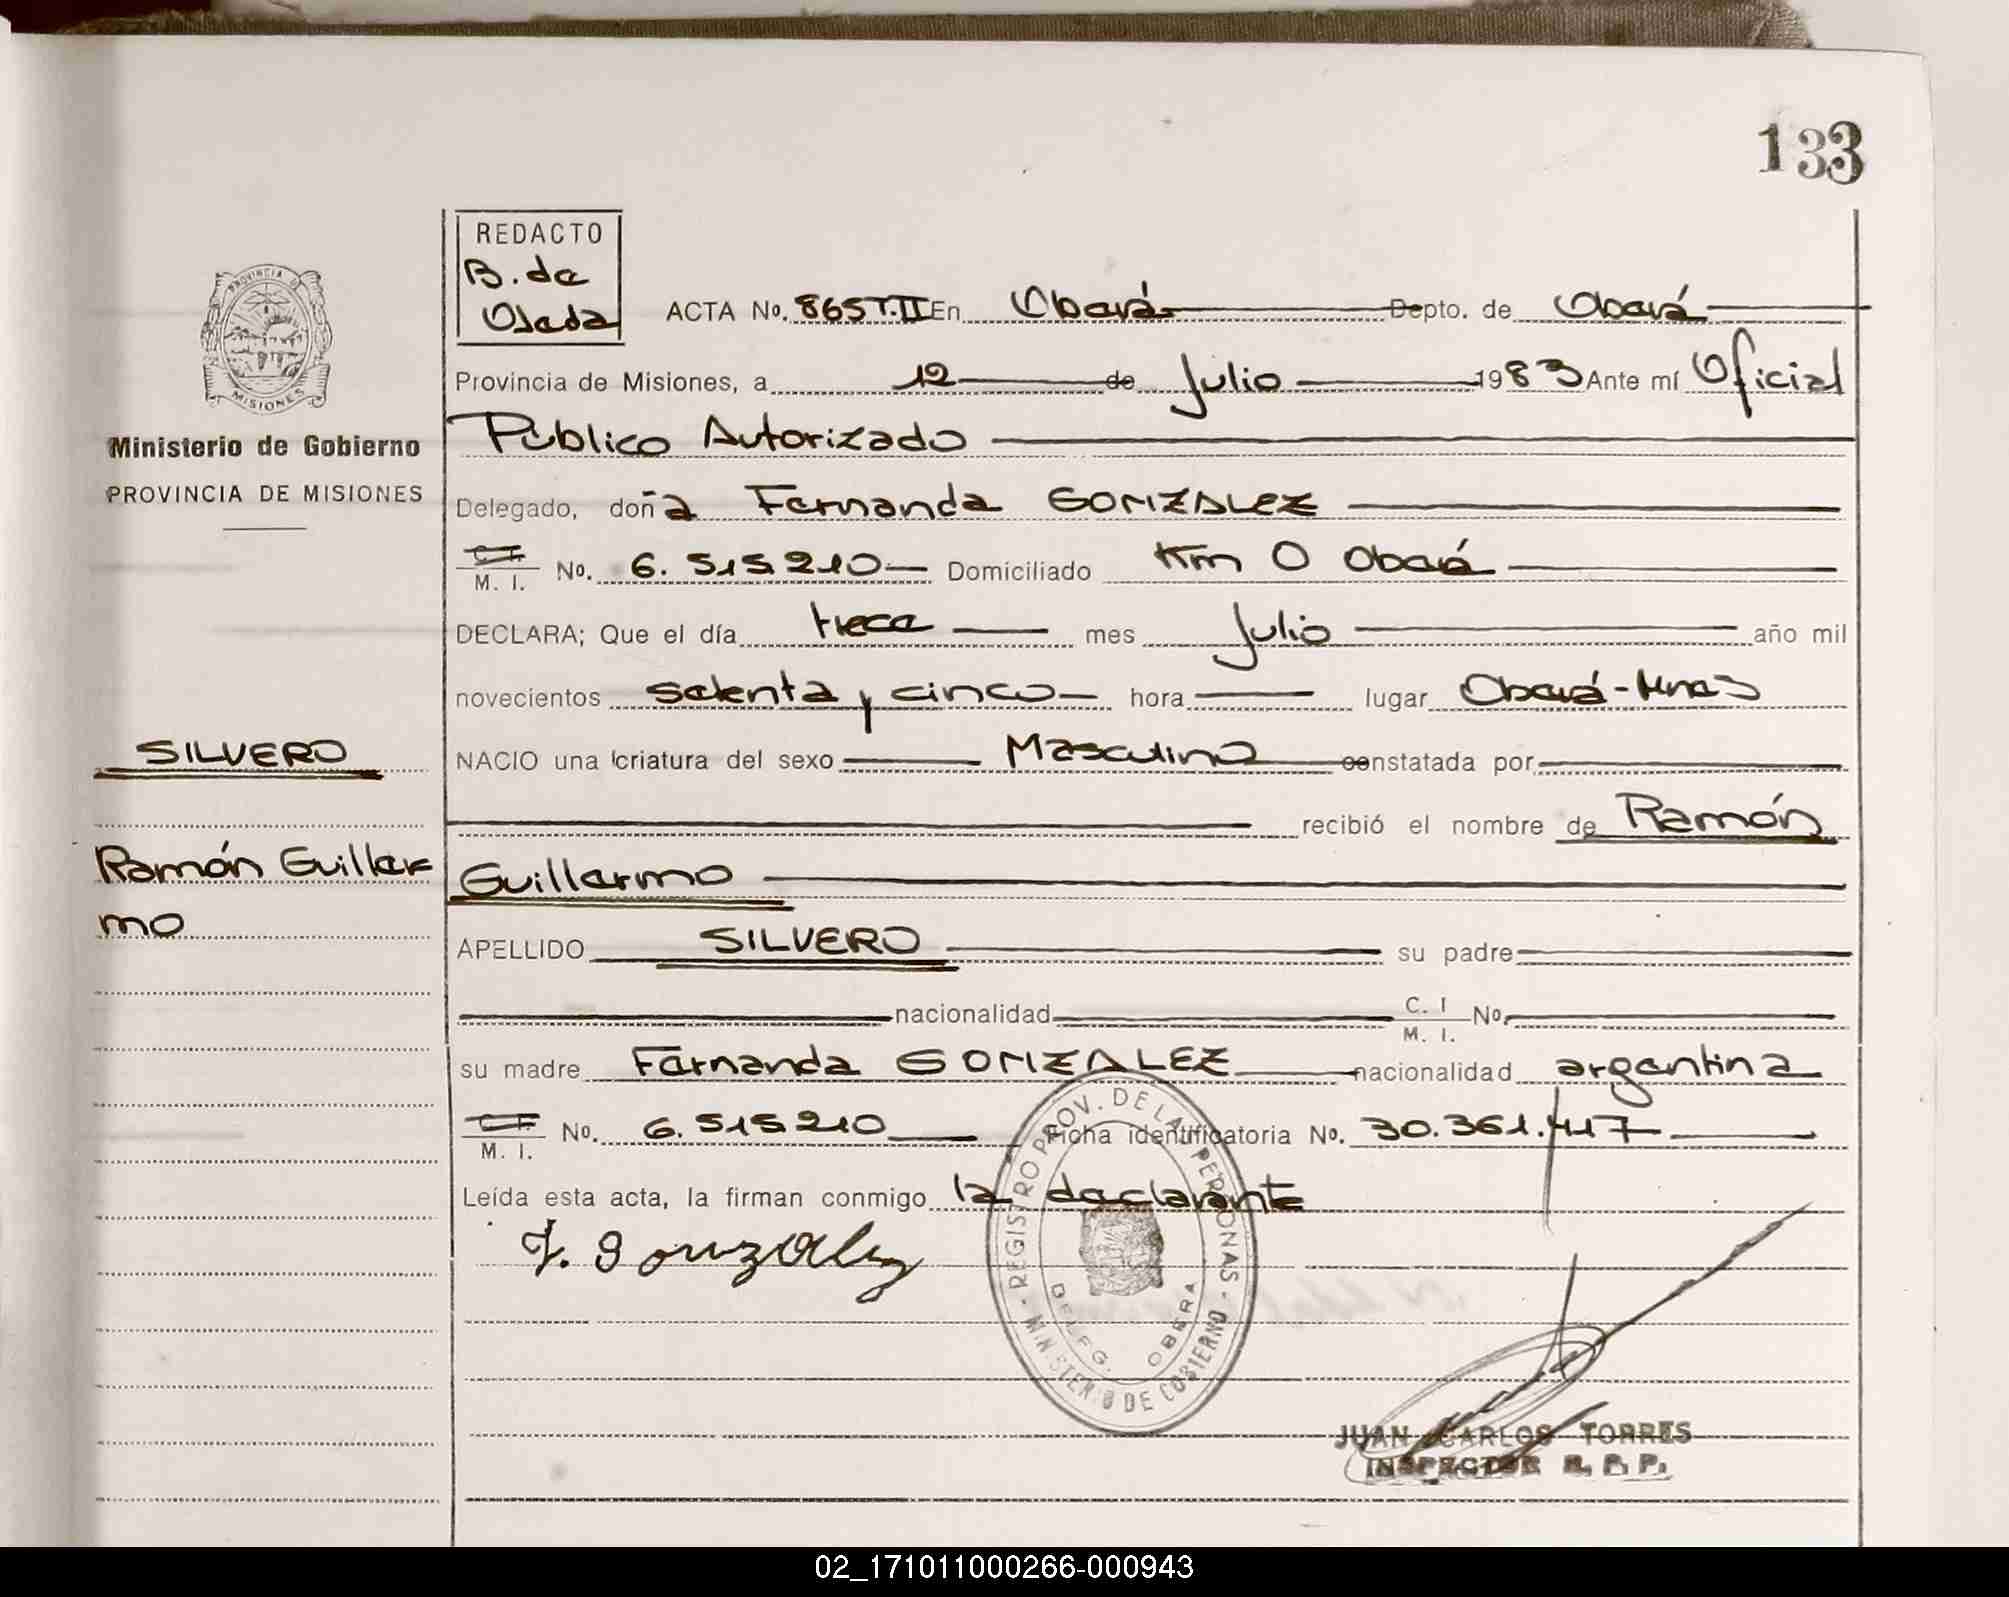 133
REDACTO
B. de
Ojeda
ACTA No. 865 T.II En Oberá Depto. de Oberá
PROVINCIA DE
MISIONES
Provincia de Misiones, a 12 de Julio 1983 Ante mí Oficial
Ministerio de Gobierno
Público Autorizado
PROVINCIA DE MISIONES
Delegado, doña Fernanda GONZALEZ
C.I.
M. I. No. 6.515.210 Domiciliado Km 0 Oberá
DECLARA; Que el día trece mes Julio año mil
novecientos setenta y cinco hora lugar Oberá-Mnes
SILVERO
NACIO una criatura del sexo Masculino constatada por
recibió el nombre de Ramón
Ramón Guiller
mo
Guillermo
APELLIDO SILVERO su padre
nacionalidad C. I
M. I. No.
su madre Fernanda GONZALEZ nacionalidad argentina
C.I.
M. I. No. 6.515.210 Ficha identificatoria No. 30.361.417
Leída esta acta, la firman conmigo la declarante
F. Gonzalez
REGISTRO PROV. DE LA PERSONAS - MINISTERIO DE GOBIERNO
DELEG. OBERA
JUAN CARLOS TORRES
INSPECTOR R. P. P.
02_171011000266-000943